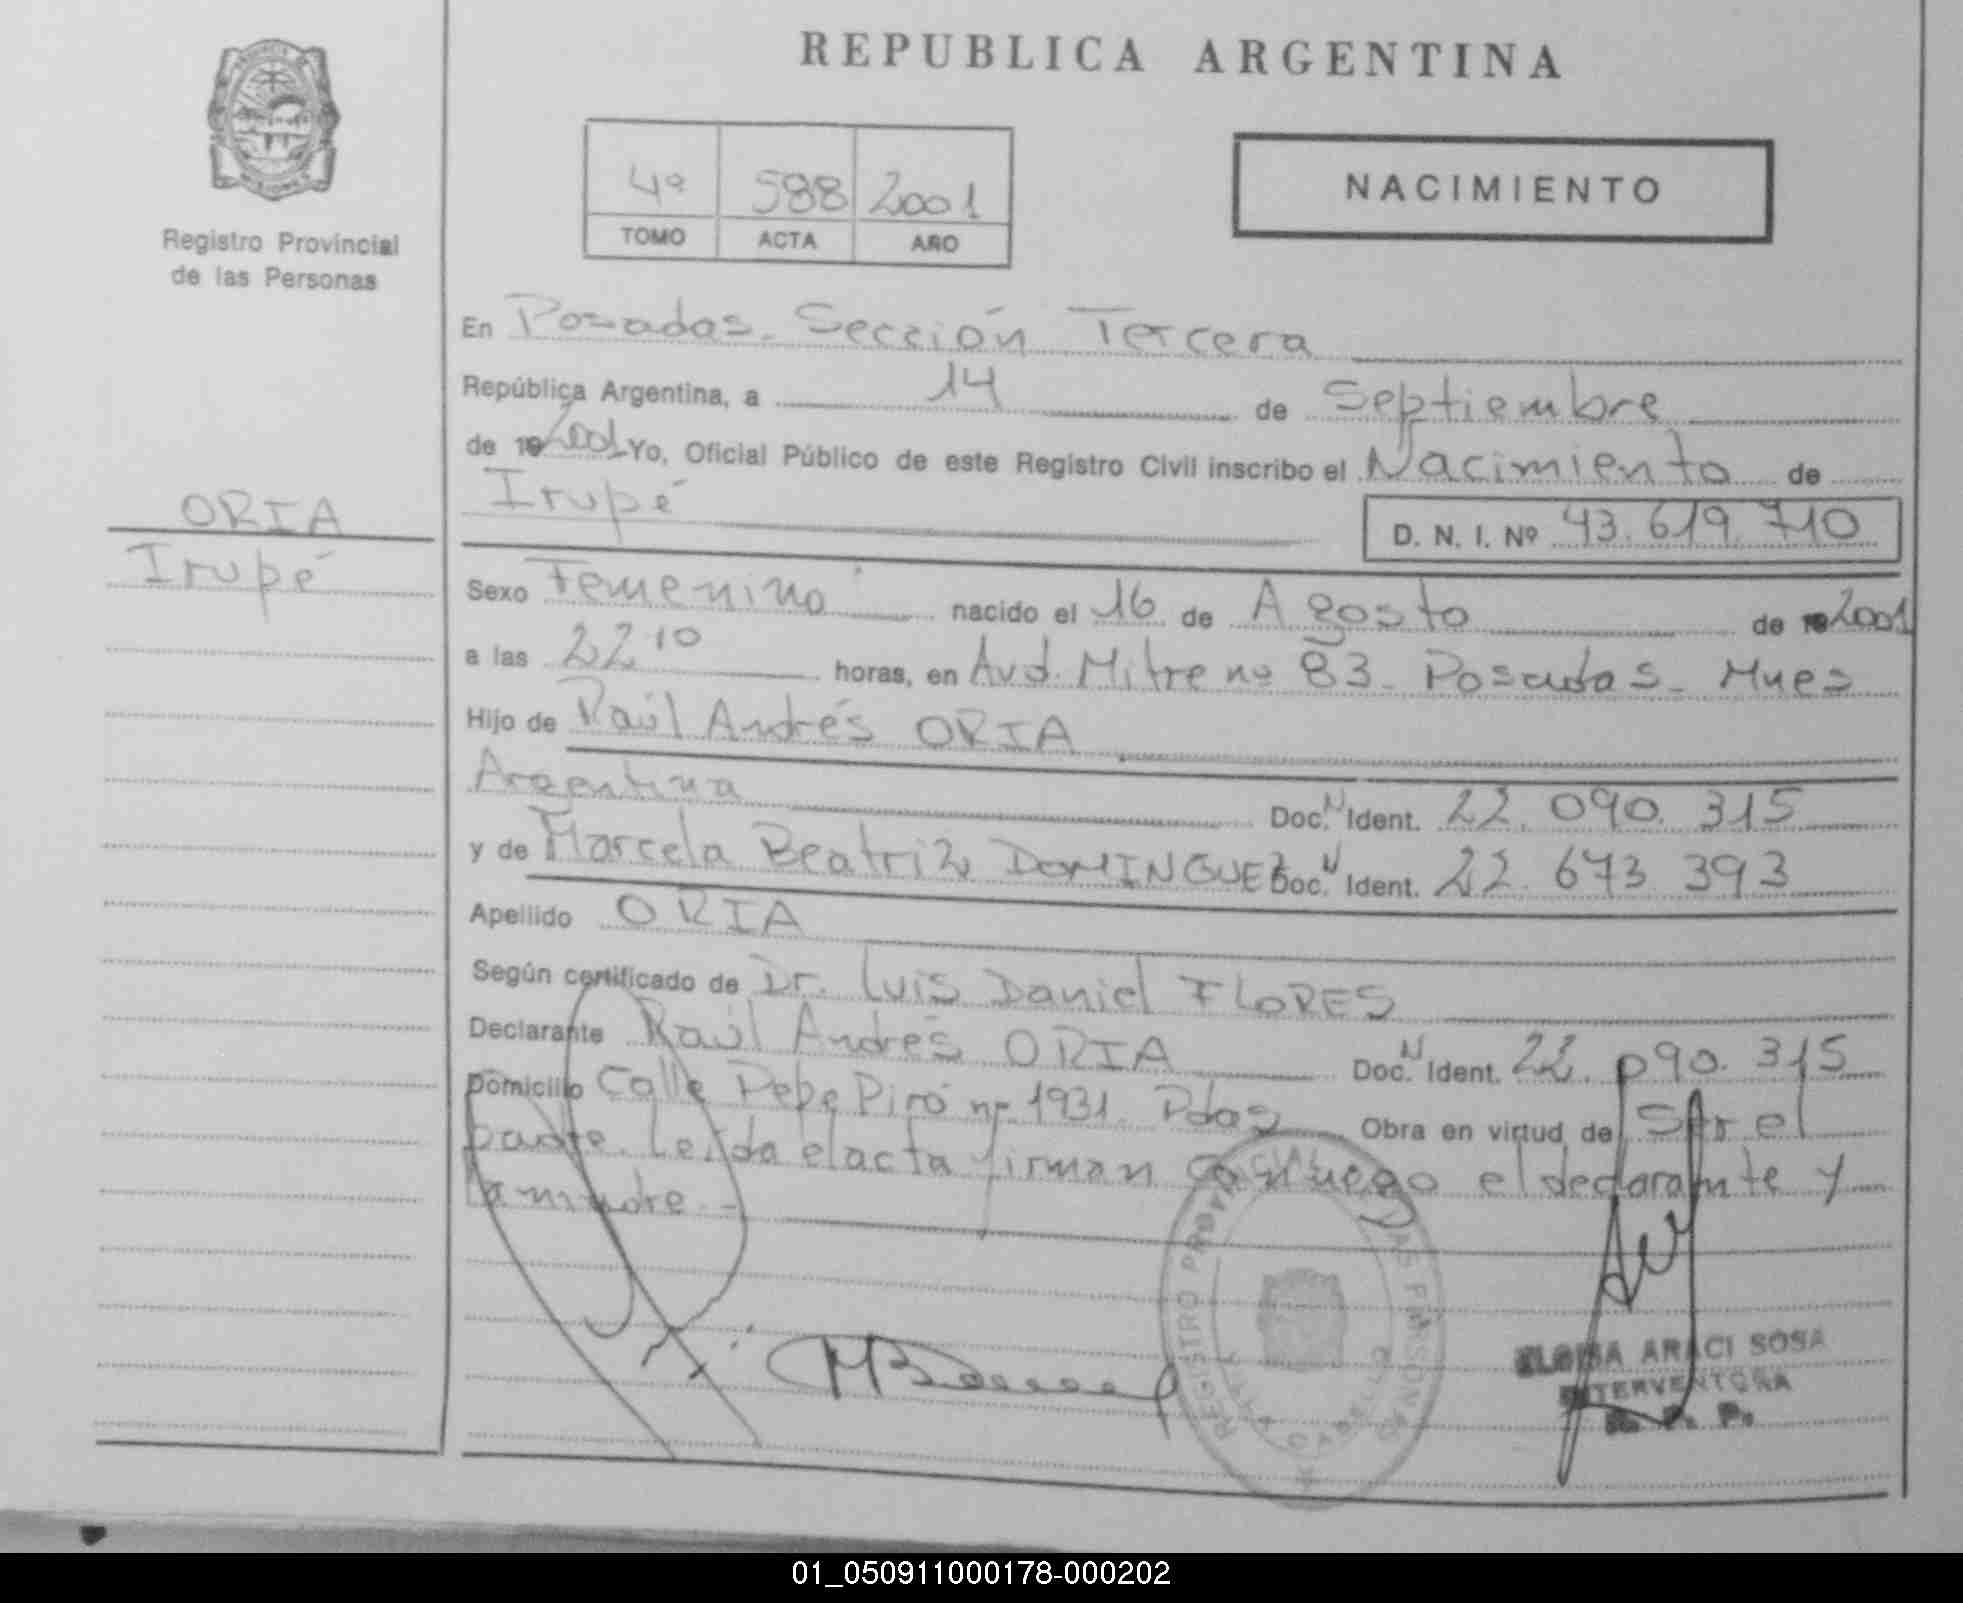 REPUBLICA ARGENTINA
Registro Provincial
de las Personas
4º 588 2001
TOMO ACTA AÑO
NACIMIENTO
ORIA
Irupé
En Posadas. Sección Tercera
República Argentina, a 14 de Septiembre
de 19 2001 Yo, Oficial Público de este Registro Civil inscribo el Nacimiento de
Irupé
D. N. I. Nº 43.619.710
Sexo Femenino nacido el 16 de Agosto de 19 2001
a las 22 10 horas, en Avd. Mitre nº 83. Posadas. Mnes
Hijo de Raúl Andrés ORIA
Argentina Doc. N Ident. 22.090.315
y de Marcela Beatriz DOMINGUEZ Doc. N Ident. 22.673.393
Apellido ORIA
Según certificado de Dr. Luis Daniel FLORES
Declarante Raúl Andrés ORIA Doc. N Ident. 22.090.315
Domicilio Calle Pepe Piró nº 1931. Pdas Obra en virtud de Ser el
padre. Leída el acta firman conmigo el declarante y
la madre.-
REGISTRO PROV DE LAS PERSONAS
ARACI SOSA
INTERVENTORA
R. P. P.
01_050911000178-000202